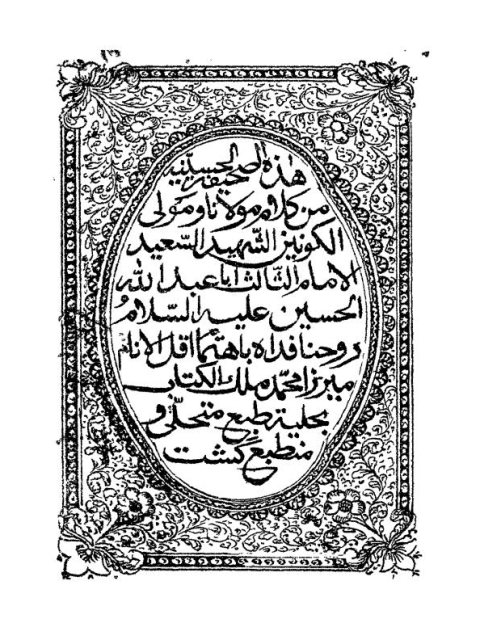 هذه الصحيفة الحسينية
من كلام مولانا و مولى
الكونين الشهيد السعيد
الامام الثالث ابا عبد الله
الحسين عليه السلام
روحنا فداه باهتمام اقل الانام
ميرزا محمد ملك الكتاب
بحلية طبع متحلى و
منطبع گشت